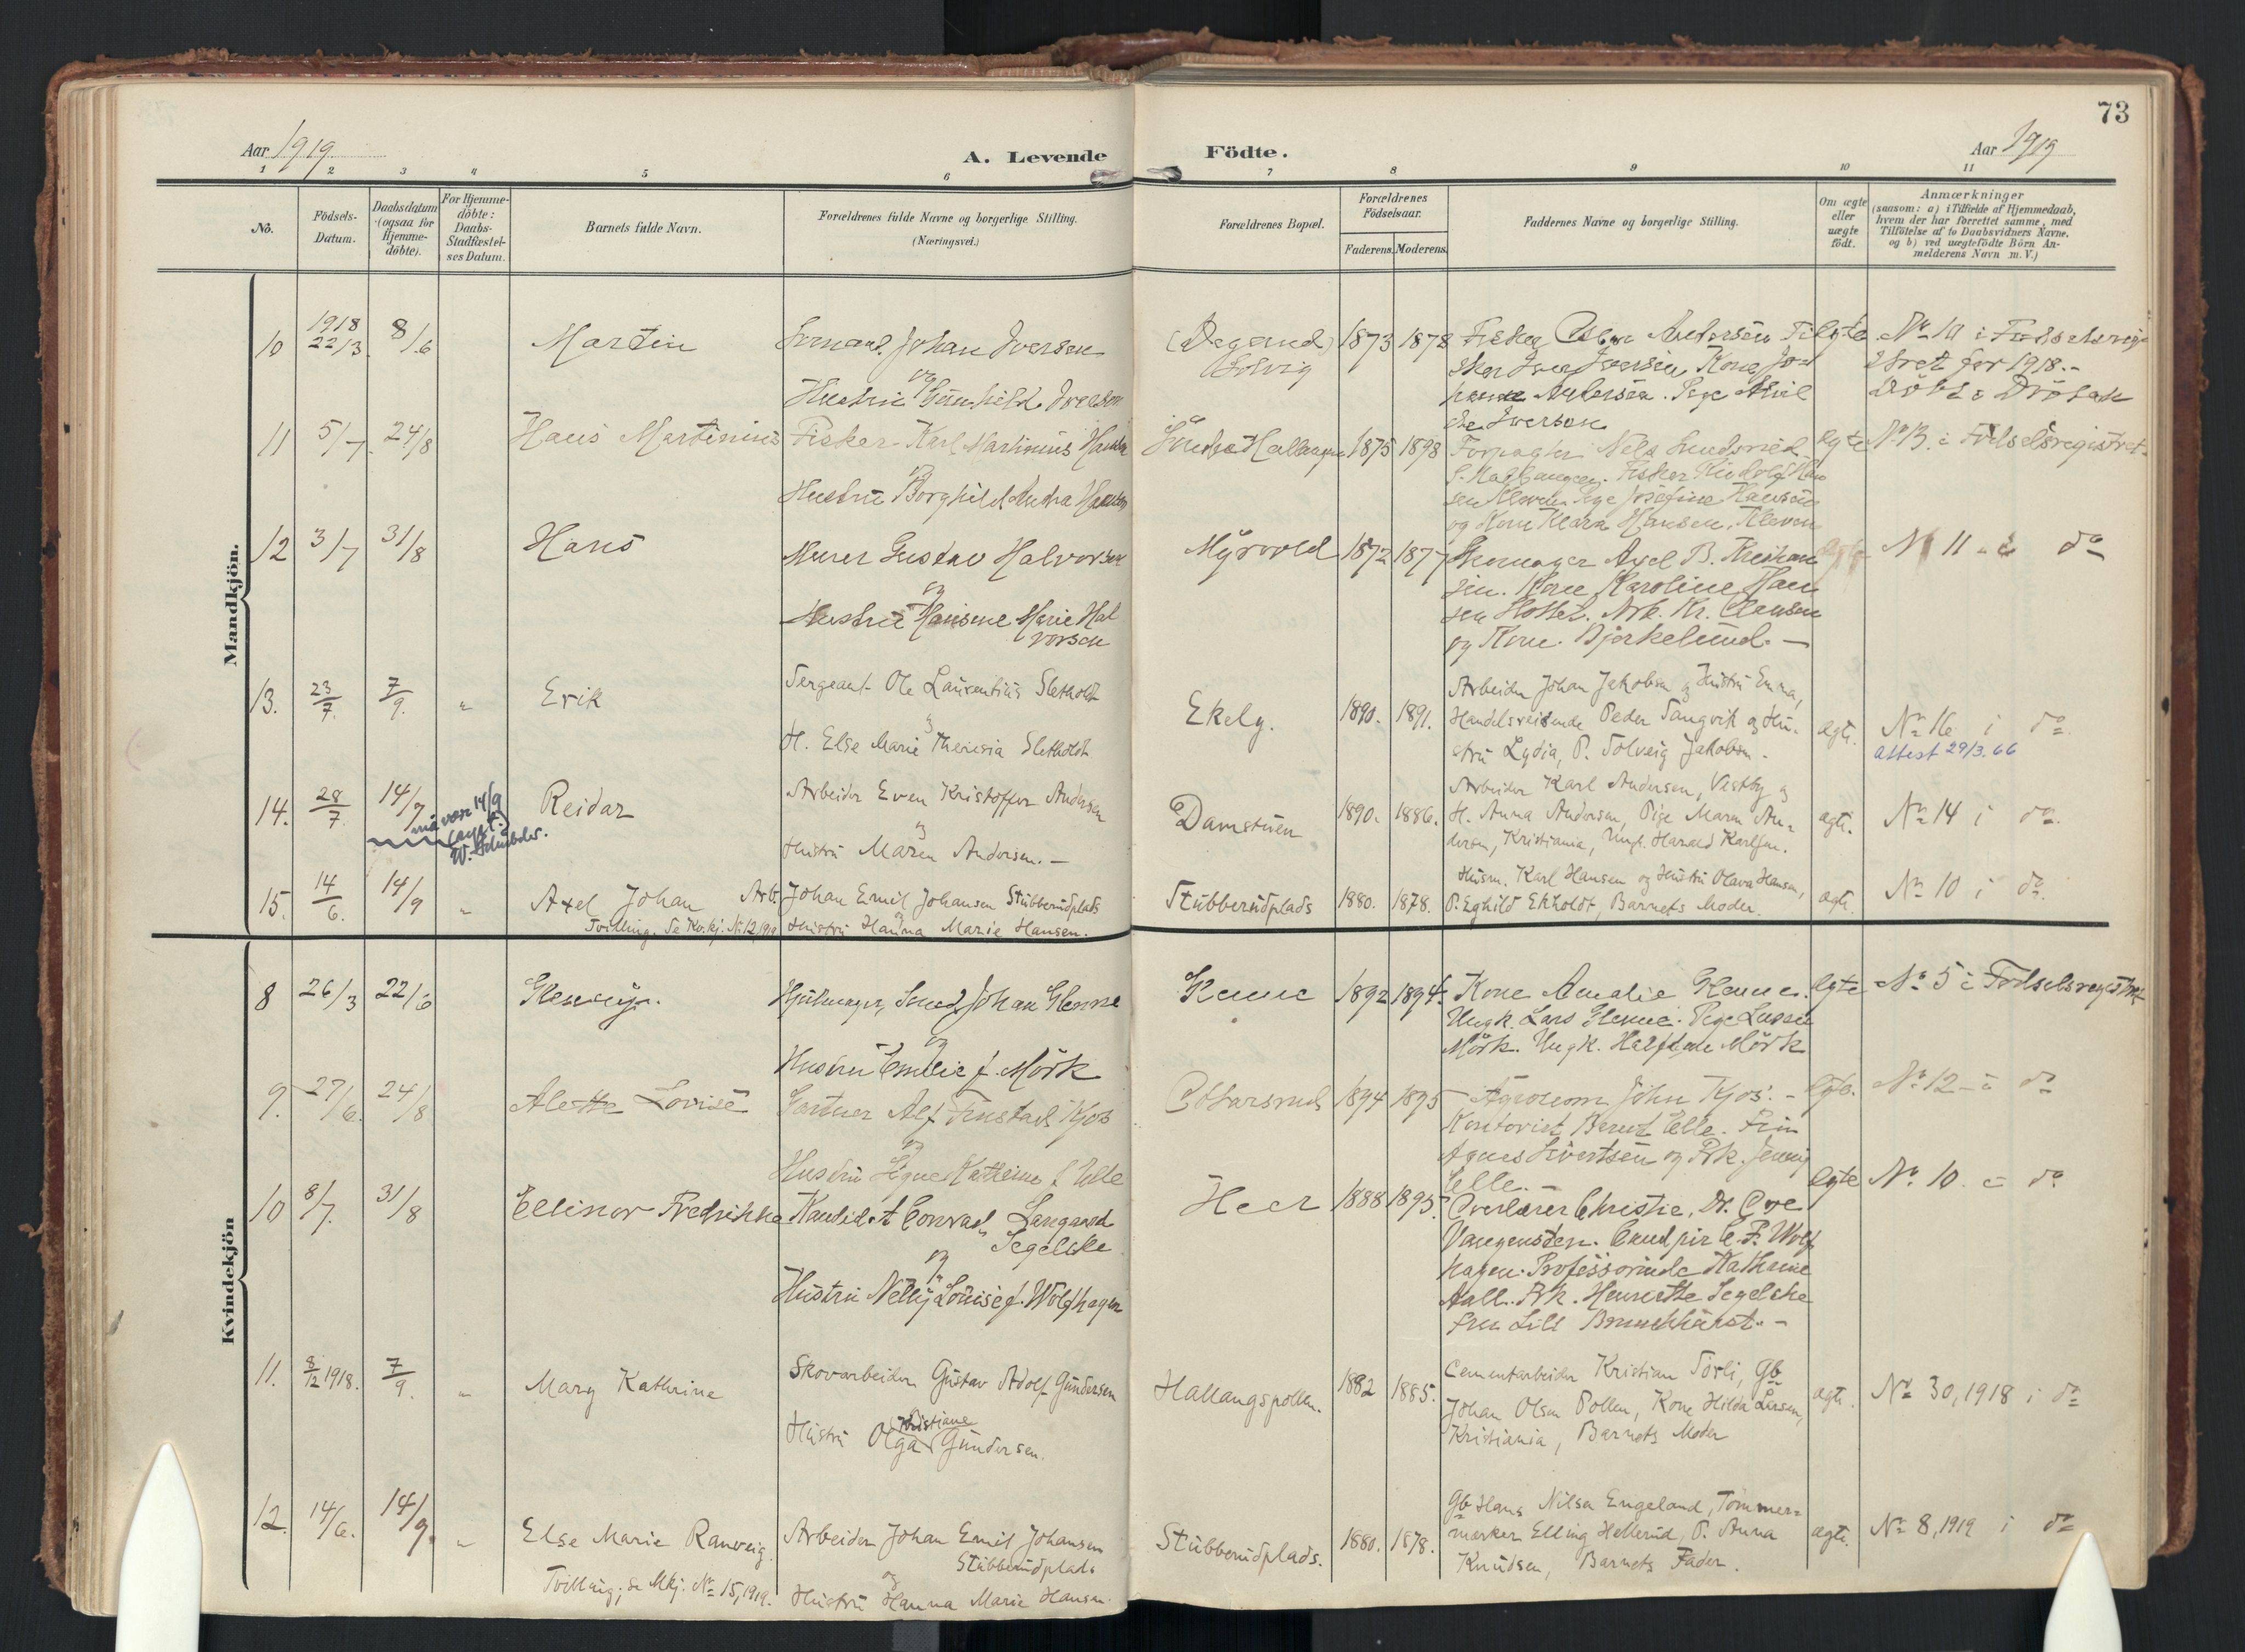 73
Aar 1919
A. Levende
Födte.
Aar 1919
1 2 3 4 5 6 7 8 9 10 11
No.
Födsels-
Datum.
Daabsdatum
(ogsaa for
Hjemme-
döbte).
For Hjemme-
döbte:
Daabs-
Stadfæstel-
ses Datum.
Barnets fulde Navn.
Forældrenes fulde Navne og borgerlige Stilling.
(Næringsvei.)
Forældrenes Bopæl.
Forældrenes
Födselsaar.
Faderens. Moderens.
Faddernes Navne og borgerlige Stilling.
Om ægte
eller
uægte
födt.
Anmærkninger
(saasom: a) i Tilfælde af Hjemmedaab,
hvem der har forrettet samme, med
Tilförelse af to Daabsvidners Navne.
og b) ved uægtefödte Börn An-
melderens Navn m. V.)
Mandkjön.
10
1918
22/3
8/6
Martin
Johan Iversen
og
Hustru Gunhild Iversen
Solvig
1873 1878
Fisker Andersen
Iver Iversen Kone Jo-
hanne Andersen. Pige
Iversen
ægte
No 10 i Fødselsregi-
stret for 1918.-
Döbt i Dröbak
11
5/7
24/8
Hans Martinius
Fisker Karl Martinius Hansen
og
Hustru Borghild Hansen
Söndre Hallangen
1875 1898
Forpagter Nils
S. Hallangen. Fisker
Pige Josefine Hansen
og Kone Klara Hansen, Kleven
ægte
No 13 i Födselsregistret
12
3/7
31/8
Hans
Murer Gustav Halvorsen
og
Hustru Hansine Marie Hal
vorsen
Myrvold
1872 1877
Skomager Axel B. Kristian
sen. Kone Karoline Han
sen Arb. Kr. Clausen
og Kone. Bjerkelund. —
ægte
No 11 i do
13.
23/7.
7/9.
"
Erik
Sergeant Ole Laurentius Sletholt
og
H. Else Marie Theresia Sletholdt
Ekely.
1890. 1891.
Arbeider Johan Jakobsen og Hustru Emma,
Handelsreisende Peder Tangvik og Hu-
stru Lydia, P. Solveig Jakobsen.
ægte.
No 16 i do
attest 29/3.66
14.
28/7
14/7
må være 14/9
Reidar
Arbeider Even Kristoffer Andersen
og
Hustru Maren Andersen. —
Damstuen
1890. 1886.
Arbeider Karl Andersen, Vestby og
H. Anna Andersen, Pige Maren An-
dersen, Kristiania, Ungk. Harald Karlsen.
ægte.
No 14 i do.
15.
14/6.
14/9
"
Axel Johan
Tvilling. Se Kv.kj. No 12, 1919
Arb. Johan Emil Johansen Stubberudplads
og
Hustru Hanna Marie Hansen.
Stubberudplads
1880. 1878.
Husm. Karl Hansen og Hustru Olava Hansen,
P. Eghild Ekholdt, Barnets Moder.
ægte.
No 10 i do
Kvindekjön
8
26/3
22/6
Hjulmager, Smed Johan Glenne
og
Hustru Emilie f. Mörk
Glenne
1892 1894
Kone Amalie Glenne.
Ungk. Lars Glenne. Pige
Mörk. Ungk. Halfdan Mörk
ægte
No 5 i Fødselsregistret
9.
27/6.
24/8
Alette Lovise
Gartner Alf Kjos
og
Hustru Signe Kathrine f. Elle
Ottarsrud
1894 1895
Agronom John Kjos. -
Kontorist Bernt Elle. Frk
Agnes Sivertsen og Frk. Jenny
Elle. —
ægte.
No 12 i do
10
8/7.
31/8
Ellinor Fredrikke
Kandidat Conrad Langaard
Segelcke
og
Hustru Nelly Louise f. Wolfhagen
Heer
1888 1895.
Overlærer Christie, Dr. Ove
Vangensten. Cand. C. F. Wolf
hagen. Professorinde Kathrine
Aall. Frk. Henriette Segelcke
fru Lili
ægte
No 10. i do
11.
8/12 1918.
7/9.
"
Mary Kathrine
Skovarbeider Gustav Adolf Gundersen
Hustru Olga Kristiane Gundersen.
Hallangspollen.
1882 1885.
Cementarbeider Kristian Torli, Gb
Johan Olsen Pollen, Kone Hilda Larsen,
Kristiania, Barnets Moder
ægte.
No 30, 1918 i do
12.
14/6.
14/9.
"
Else Marie Ranveig.
Tvilling; se Mkj. No 15, 1919.
Arbeider Johan Emil Johansen
Stubberudplads
og
Hustru Hanna Marie Hansen.
Stubberudplads.
1880. 1878.
Gb Hans Nilsen Engeland, Tömmer-
mærker Elling Hellerud, P. Anna
Knudsen, Barnets Fader.
ægte.
No 8, 1919 i do